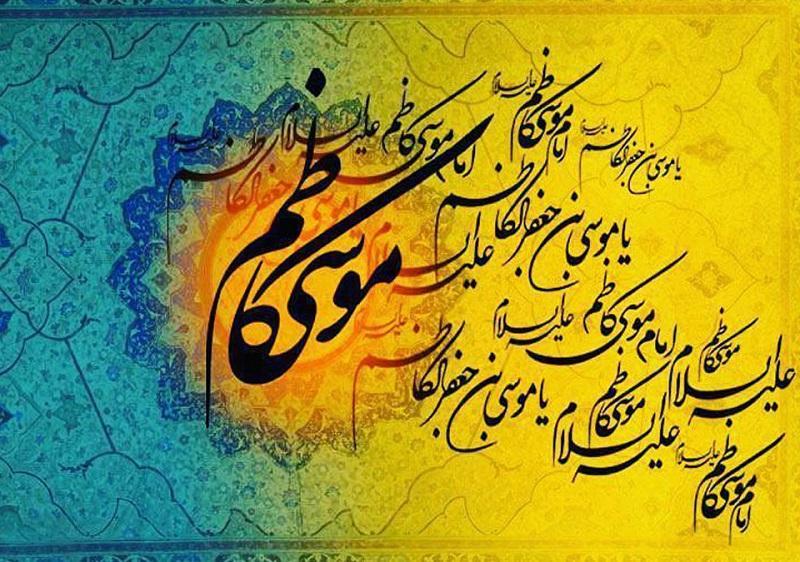 امام موسی کاظم علیه السلام
امام موسی کاظم علیه السلام
یا موسی بن جعفر الکاظم علیه السلام
موسی کاظم
یا موسی بن جعفر الکاظم
علیه السلام
امام موسی کاظم علیه السلام
موسی کاظم علیه السلام
یا موسی بن جعفر الکاظم علیه السلام
موسی کاظم علیه السلام
امام موسی کاظم علیه السلام